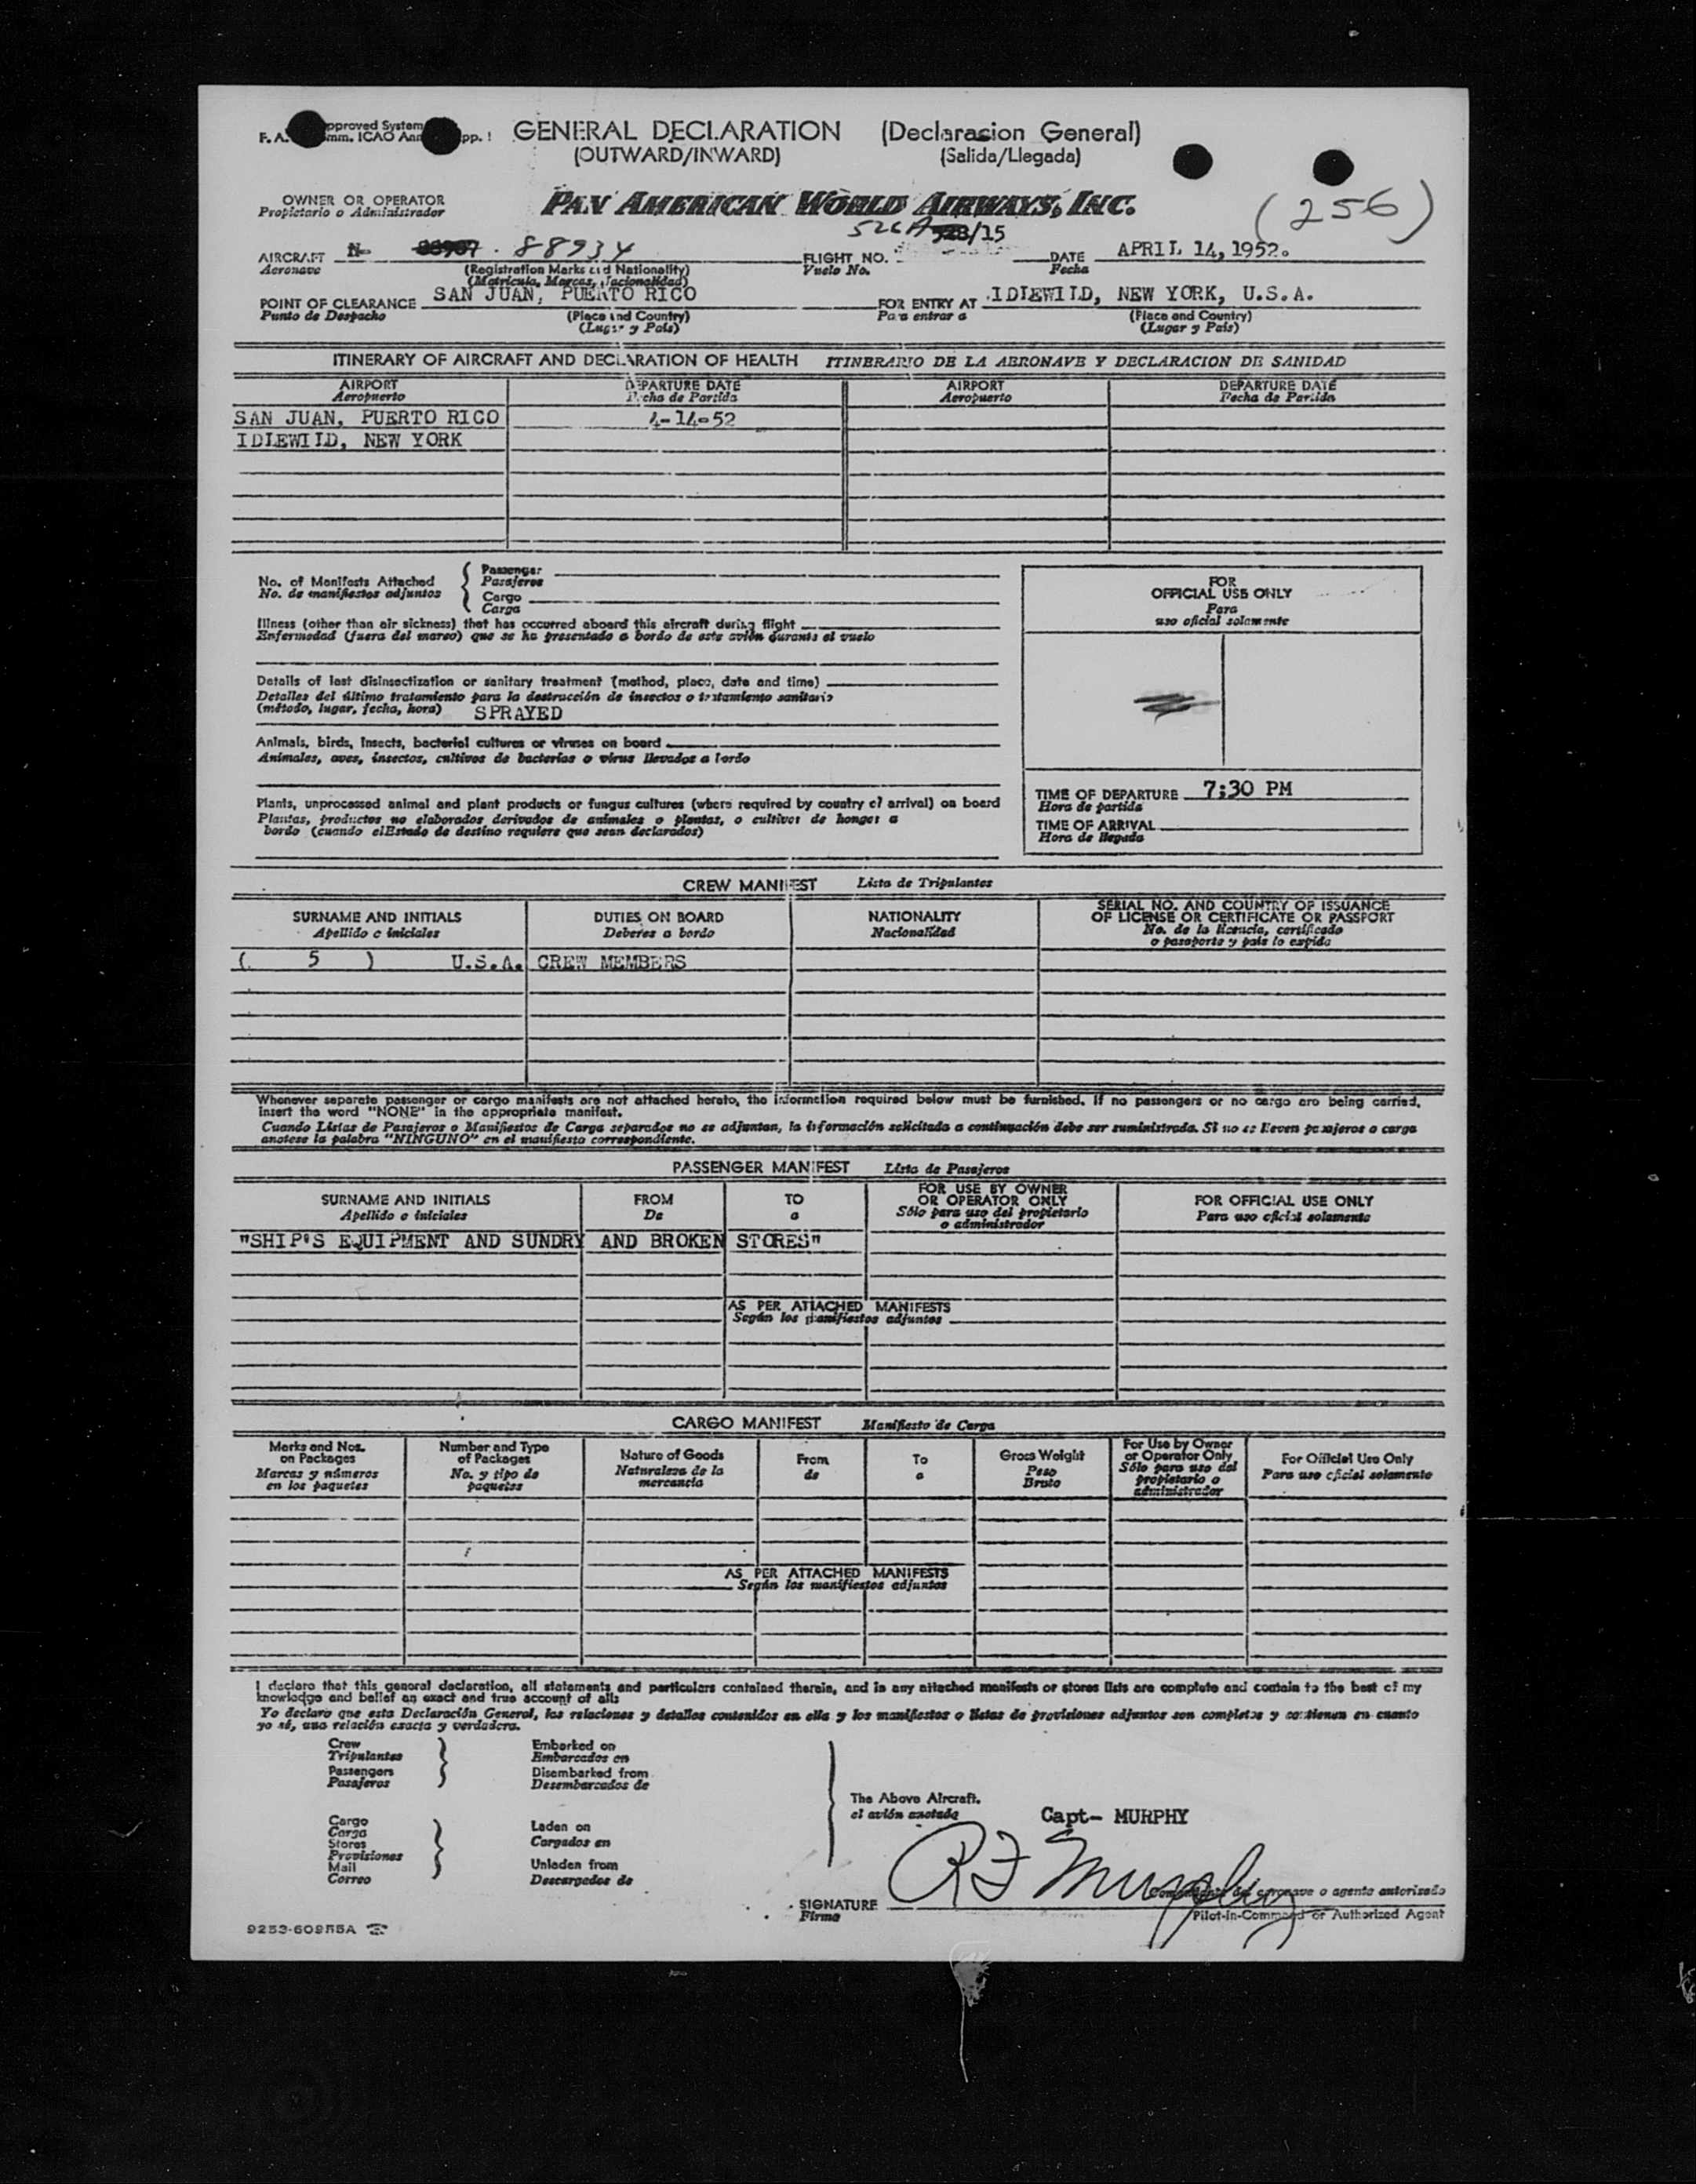 F. A. pproved System
mm. ICAO Ann pp. 1
GENERAL DECLARATION (Declaracion General)
(OUTWARD/INWARD) (Salida/Llegada)
OWNER OR OPERATOR
Propietario o Administrador
PAN AMERICAN WORLD AIRWAYS, INC.
(256)
526A 523/15
AIRCRAFT N- 88934 FLIGHT NO. DATE APRIL 14, 1952.
Aeronave (Registration Marks and Nationality) Vuelo No. Fecha
(Matricula, Marcas, Nacionalidad)
POINT OF CLEARANCE SAN JUAN, PUERTO RICO FOR ENTRY AT IDLEWILD, NEW YORK, U.S.A.
Punto de Despacho (Place and Country) Para entrar a (Place and Country)
(Lugar y País) (Lugar y País)
ITINERARY OF AIRCRAFT AND DECLARATION OF HEALTH ITINERARIO DE LA AERONAVE Y DECLARACION DE SANIDAD
AIRPORT DEPARTURE DATE AIRPORT DEPARTURE DATE
Aeropuerto Fecha de Partida Aeropuerto Fecha de Partida
SAN JUAN, PUERTO RICO 4-14-52
IDLEWILD, NEW YORK
No. of Manifests Attached
No. de manifiestos adjuntos
Passenger
Pasajeros
Cargo
Carga
Illness (other than air sickness) that has occurred aboard this aircraft during flight
Enfermedad (fuera del mareo) que se ha presentado a bordo de este avión durante el vuelo
Details of last disinsectization or sanitary treatment (method, place, date and time)
Detalles del último tratamiento para la destrucción de insectos o tratamiento sanitario
(método, lugar, fecha, hora) SPRAYED
Animals, birds, insects, bacterial cultures or viruses on board
Animales, aves, insectos, cultivos de bacterias o virus llevados a bordo
Plants, unprocessed animal and plant products or fungus cultures (where required by country of arrival) on board
Plantas, productos no elaborados derivados de animales o plantas, o cultivos de hongos a
bordo (cuando el Estado de destino requiere que sean declarados)
FOR
OFFICIAL USE ONLY
Para
uso oficial solamente
TIME OF DEPARTURE 7:30 PM
Hora de partida
TIME OF ARRIVAL
Hora de llegada
CREW MANIFEST Lista de Tripulantes
SURNAME AND INITIALS DUTIES ON BOARD NATIONALITY SERIAL NO. AND COUNTRY OF ISSUANCE
OF LICENSE OR CERTIFICATE OR PASSPORT
Apellido e iniciales Deberes a bordo Nacionalidad No. de la licencia, certificado
o pasaporte y país lo expida
( 5 ) U.S.A. CREW MEMBERS
Whenever separate passenger or cargo manifests are not attached hereto, the information required below must be furnished. If no passengers or no cargo are being carried,
insert the word "NONE" in the appropriate manifest.
Cuando Listas de Pasajeros o Manifiestos de Carga separados no se adjuntan, la información solicitada a continuación debe ser suministrada. Si no se lleven pasajeros o carga
anotese la palabra "NINGUNO" en el manifiesto correspondiente.
PASSENGER MANIFEST Lista de Pasajeros
SURNAME AND INITIALS FROM TO FOR USE BY OWNER
OR OPERATOR ONLY FOR OFFICIAL USE ONLY
Apellido e iniciales De a Sólo para uso del propietario
o administrador Para uso oficial solamente
"SHIP'S EQUIPMENT AND SUNDRY AND BROKEN STORES"
AS PER ATTACHED MANIFESTS
Según los manifiestos adjuntos
CARGO MANIFEST Manifiesto de Carga
Marks and Nos.
on Packages
Marcas y números
en los paquetes
Number and Type
of Packages
No. y tipo de
paquetes
Nature of Goods
Naturaleza de la
mercancia
From
de
To
a
Gross Weight
Peso
Bruto
For Use by Owner
or Operator Only
Sólo para uso del
propietario o
administrador
For Official Use Only
Para uso oficial solamente
AS PER ATTACHED MANIFESTS
Según los manifiestos adjuntos
I declare that this general declaration, all statements and particulars contained therein, and in any attached manifests or stores lists are complete and contain to the best of my
knowledge and belief an exact and true account of all:
Yo declaro que esta Declaración General, las relaciones y detalles contenidos en ella y los manifiestos o listas de provisiones adjuntos son completos y contienen en cuanto
yo sé, una relación exacta y verdadera.
Crew
Tripulantes
Passengers
Pasajeros
Embarked on
Embarcados en
Disembarked from
Desembarcados de
Cargo
Carga
Stores
Provisiones
Mail
Correo
Laden on
Cargados en
Unladen from
Descargados de
The Above Aircraft.
el avión anotado
Capt- MURPHY
RF Murphy
SIGNATURE
Firma
aeronave o agente autorizado
Pilot-in-Command or Authorized Agent
9253-60955A